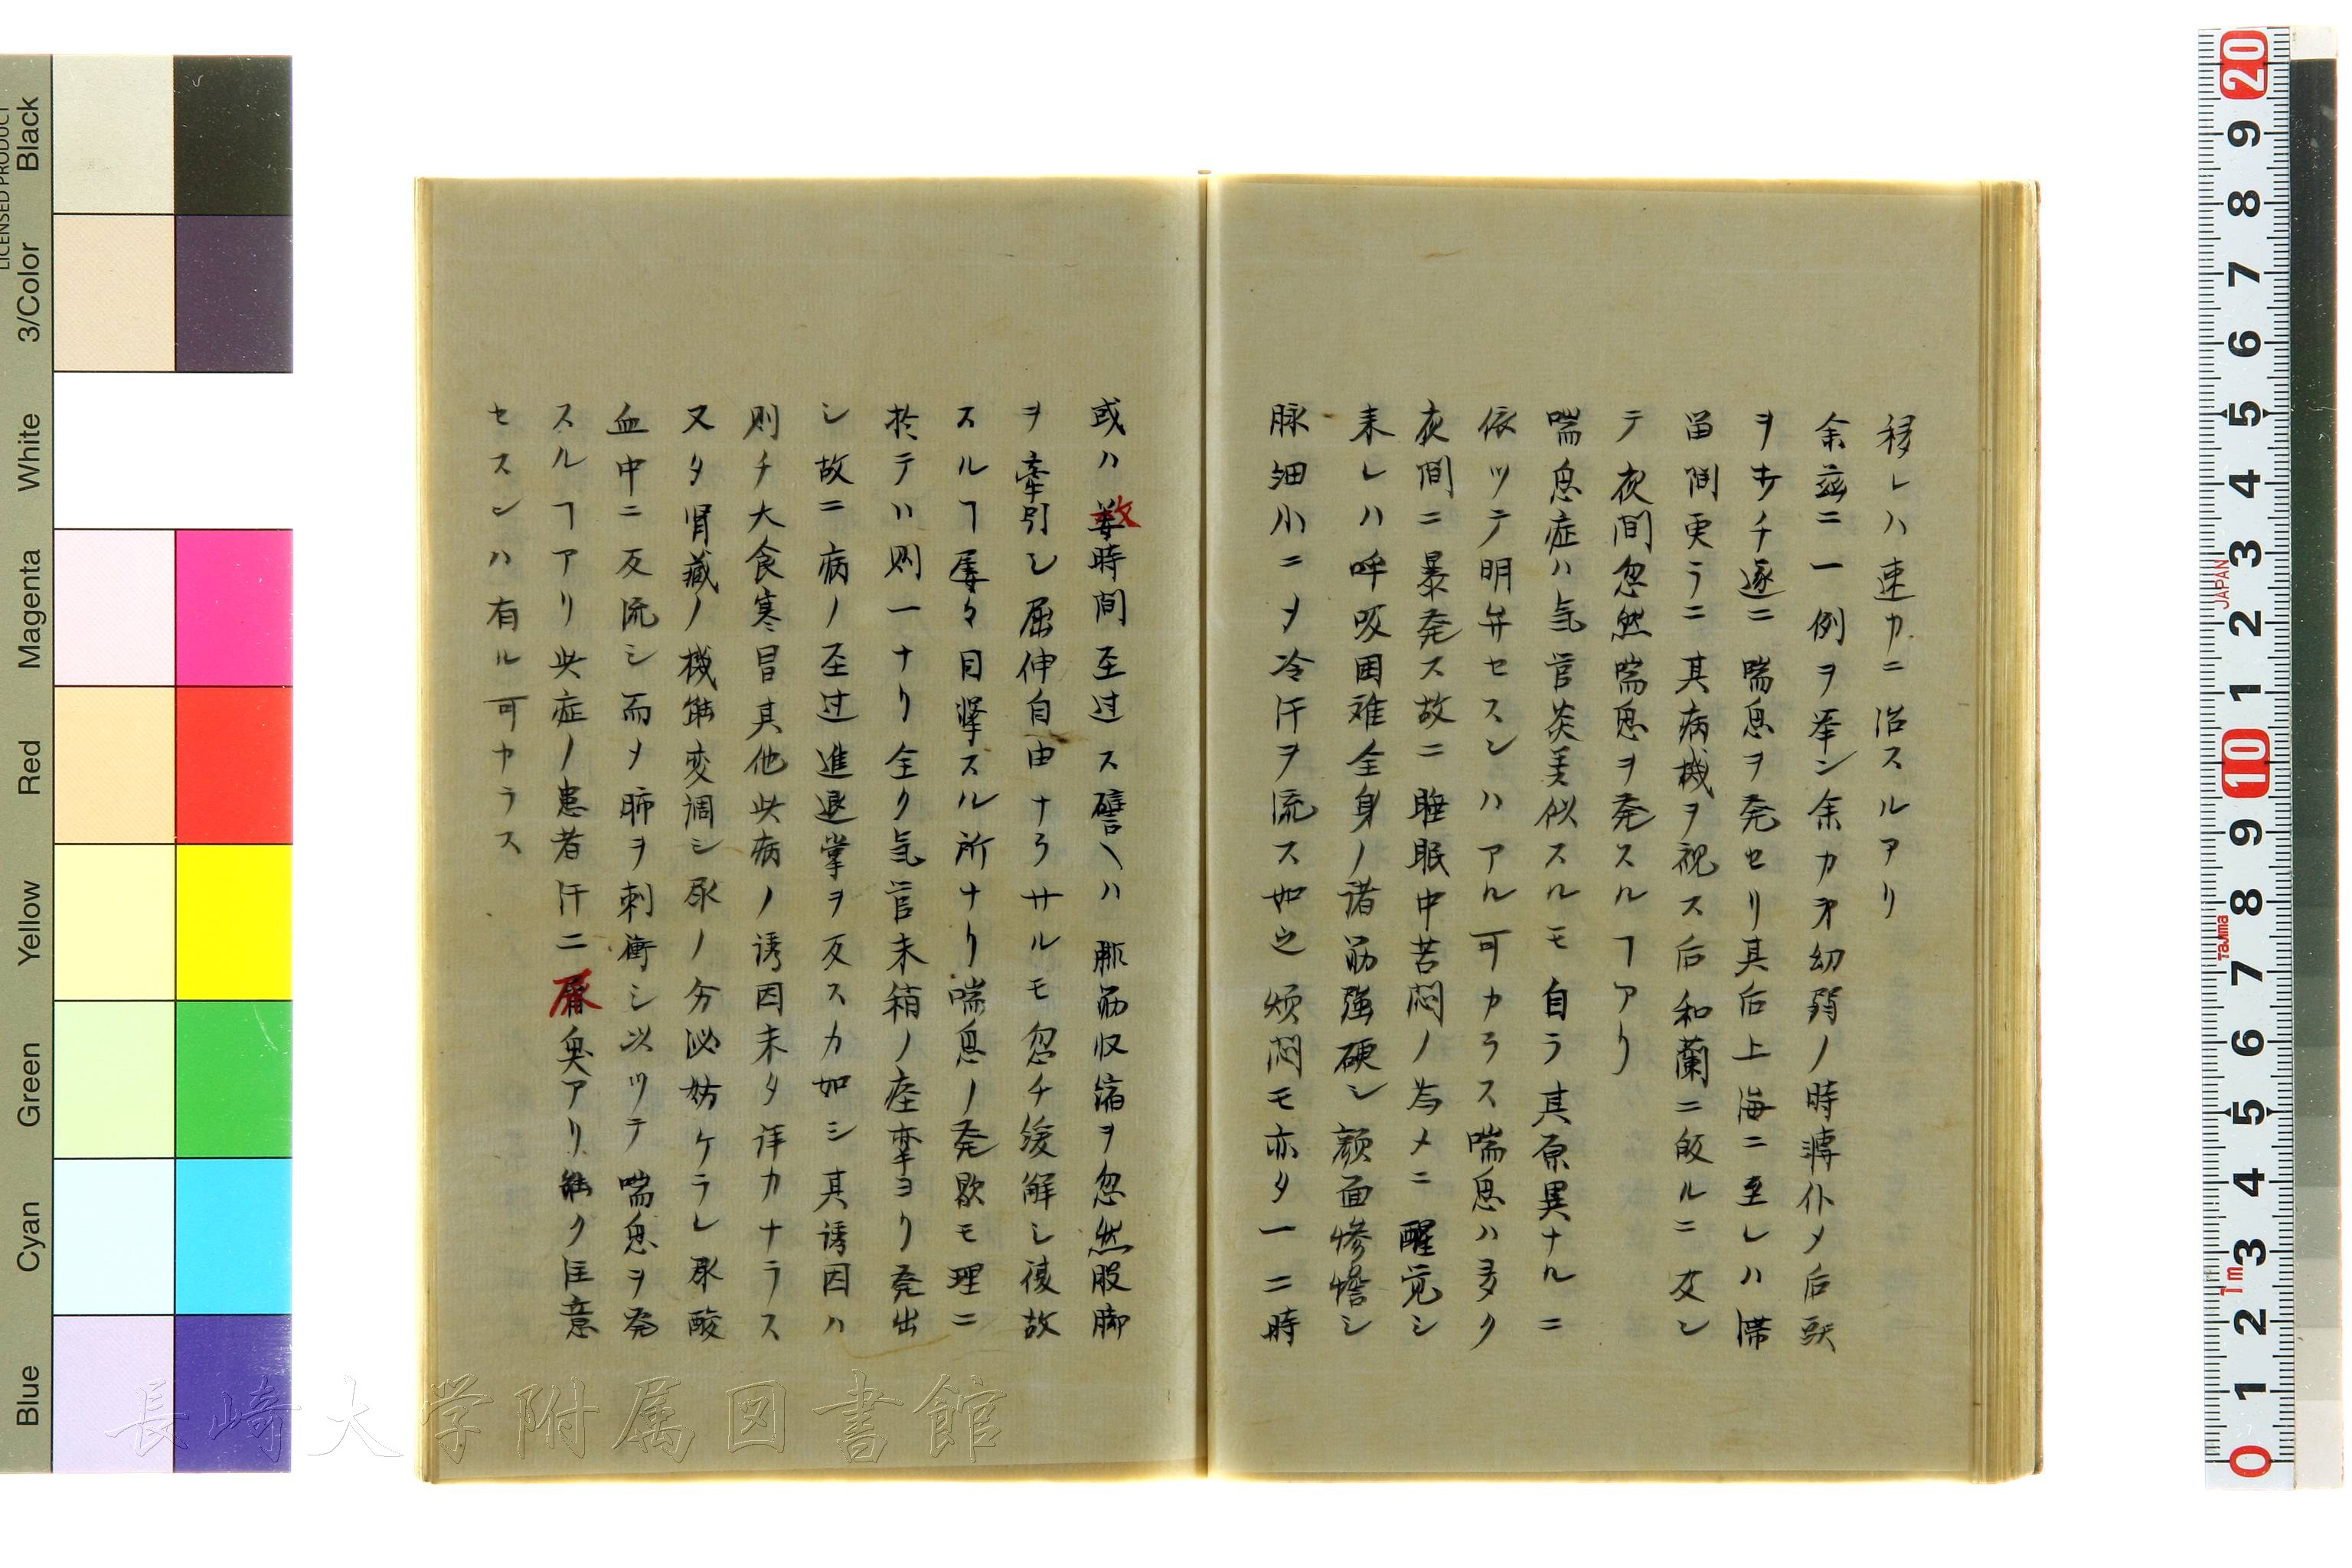 移レハ速カニ治スルアリ
余茲ニ一例ヲ挙ン余カ弟幼弱ノ時仆メ后頭
ヲ歩チ遂ニ喘息ヲ発セリ其后上海ニ至レハ滞
留間更ラニ其病機ヲ視ス后和蘭ニ皈ルニ及シ
テ夜間忽然喘息ヲ発スルヿアリ
喘息症ハ気管炎ニ似スルモ自ラ其原異ナルニ
依ッテ明弁セスンハアル可カラス喘息ハ多ク
夜間ニ暴発ス故ニ睡眠中苦悶ノ為メニ醒覚シ
来レハ呼吸困難全身ノ諸筋強硬シ顔面惨憺シ
脉細小ニメ冷汗ヲ流ス如之煩悶モ亦タ一二時
或ハ数時間至过ス譬ヘハ腓筋収縮ヲ忽然股脚
ヲ牽引シ屈伸自由ナラサルモ忽チ緩解シ復故
スルヿ屡々目撃スル所ナリ喘息ノ発歇モ理ニ
於テハ則一ナリ全ク気管末稍ノ痙挛ヨリ発出
シ故ニ病ノ至过進退掌ヲ反スカ如シ其誘因ハ
則チ大食寒冒其他此病ノ誘因未タ詳カナラス
又タ肾臓ノ機能変調シ尿ノ分泌妨ケラレ尿酸
血中ニ反流シ而メ肺ヲ刺衝シ以ッテ喘息ヲ発
スルヿアリ此症ノ患者汗ニ尿臭アリ能ク注意
セスンハ有ル可カラス
長崎大学附属図書館
LICENSED PRODUCT
Black
3/Color
White
Magenta
Red
Yellow
Green
Cyan
Blue
20
9
8
7
6
5
4
3
JAPAN
2
1
10
9
8
Tajima
7
6
5
4
3
1m
2
1
0